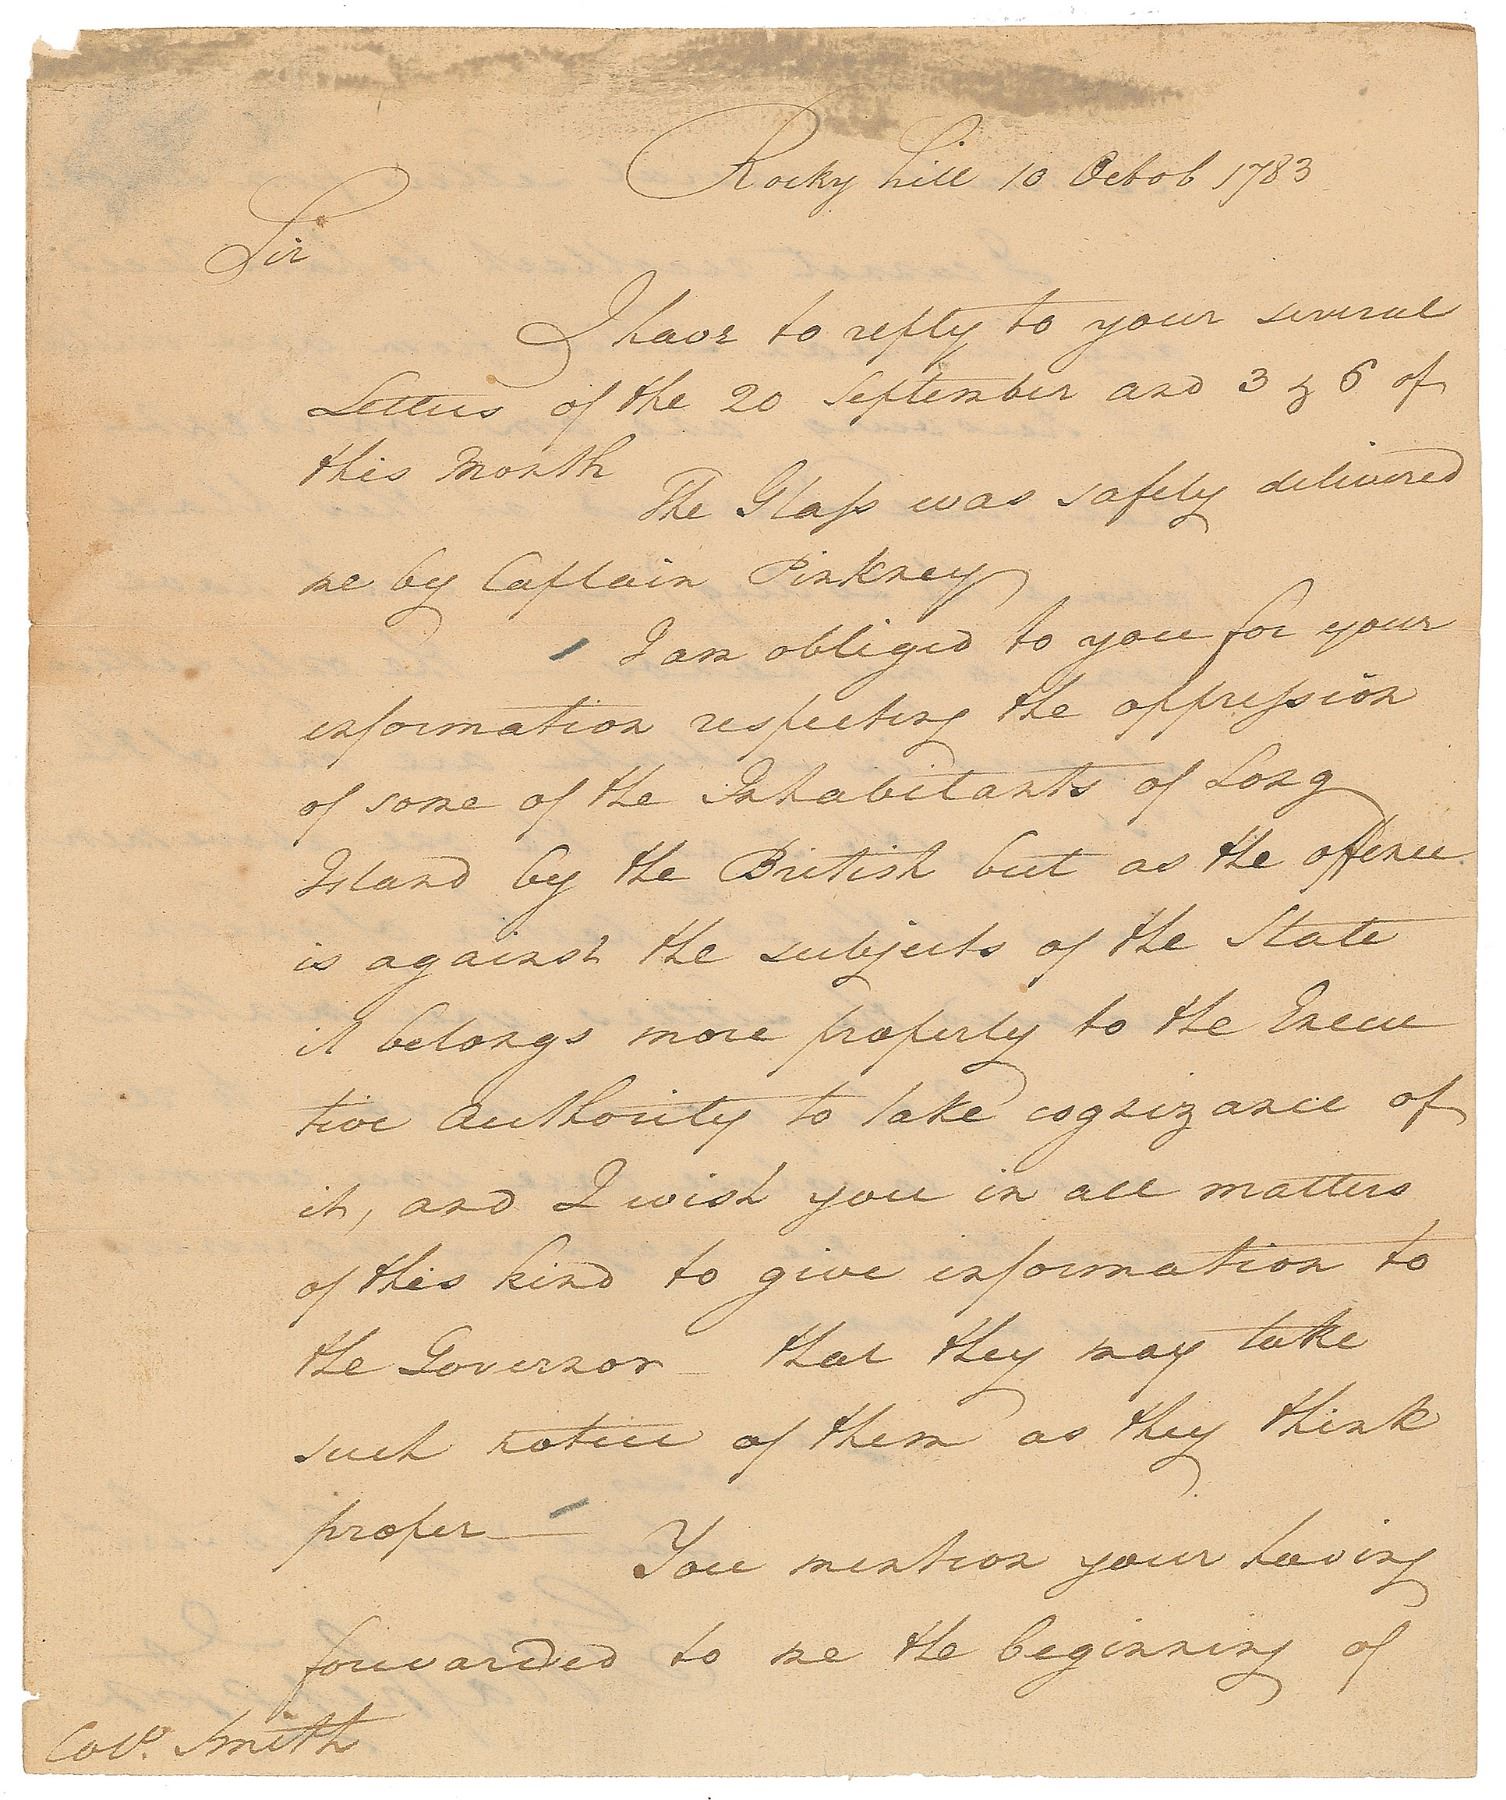 Rocky hill 10 Octob 1783
Sir
I have to reply to your several
Letters of the 20 September and 3 & 6 of
this Month
The Glass was safely delivered
me by Captain Pinkney
I am obliged to you for your
information respecting the oppression
of some of the Inhabitants of Long
Island by the British but as the offence
is against the subjects of the State
it belongs more properly to the Execu
tive authority to take cognizance of
it, and I wish you in all matters
of this kind to give information to
the Governor — that they may take
such notice of them as they think
proper —
You mention your having
forwarded to me the beginning of
Colo. Smith